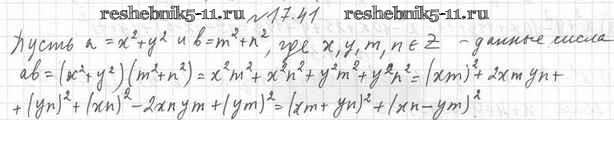 reshebnik5-11.ru №17.41 reshebnik5-11.ru
Пусть a = x² + y² и b = m² + n², где x, y, m, n ∈ Z - данные числа
ab = (x² + y²)(m² + n²) = x²m² + x²n² + y²m² + y²n² = (xm)² + 2xmyn +
+ (yn)² + (xn)² - 2xnym + (ym)² = (xm + yn)² + (xn - ym)².